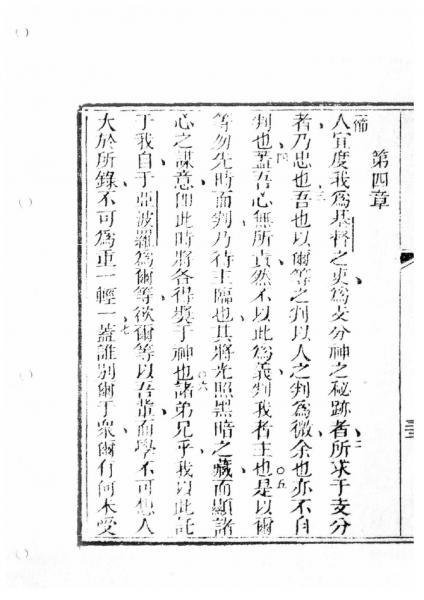 第四章
節人宜度我為基督之吏為支分神之秘跡者二所求于支分
者乃忠也三吾也以爾等之判以人之判為微余也亦不自
判也四蓋吾心無所責然不以此為義判我者主也五是以爾
等勿先時而判乃待主臨也其將光照黑暗之藏而顯諸
心之謀意卽此時將各得奬于神也六諸弟兄乎我以此託
于我自于亞波羅為爾等欲爾等以吾輩而學不可想人
大於所錄不可為重一輕一七蓋誰別爾于眾爾有何未受